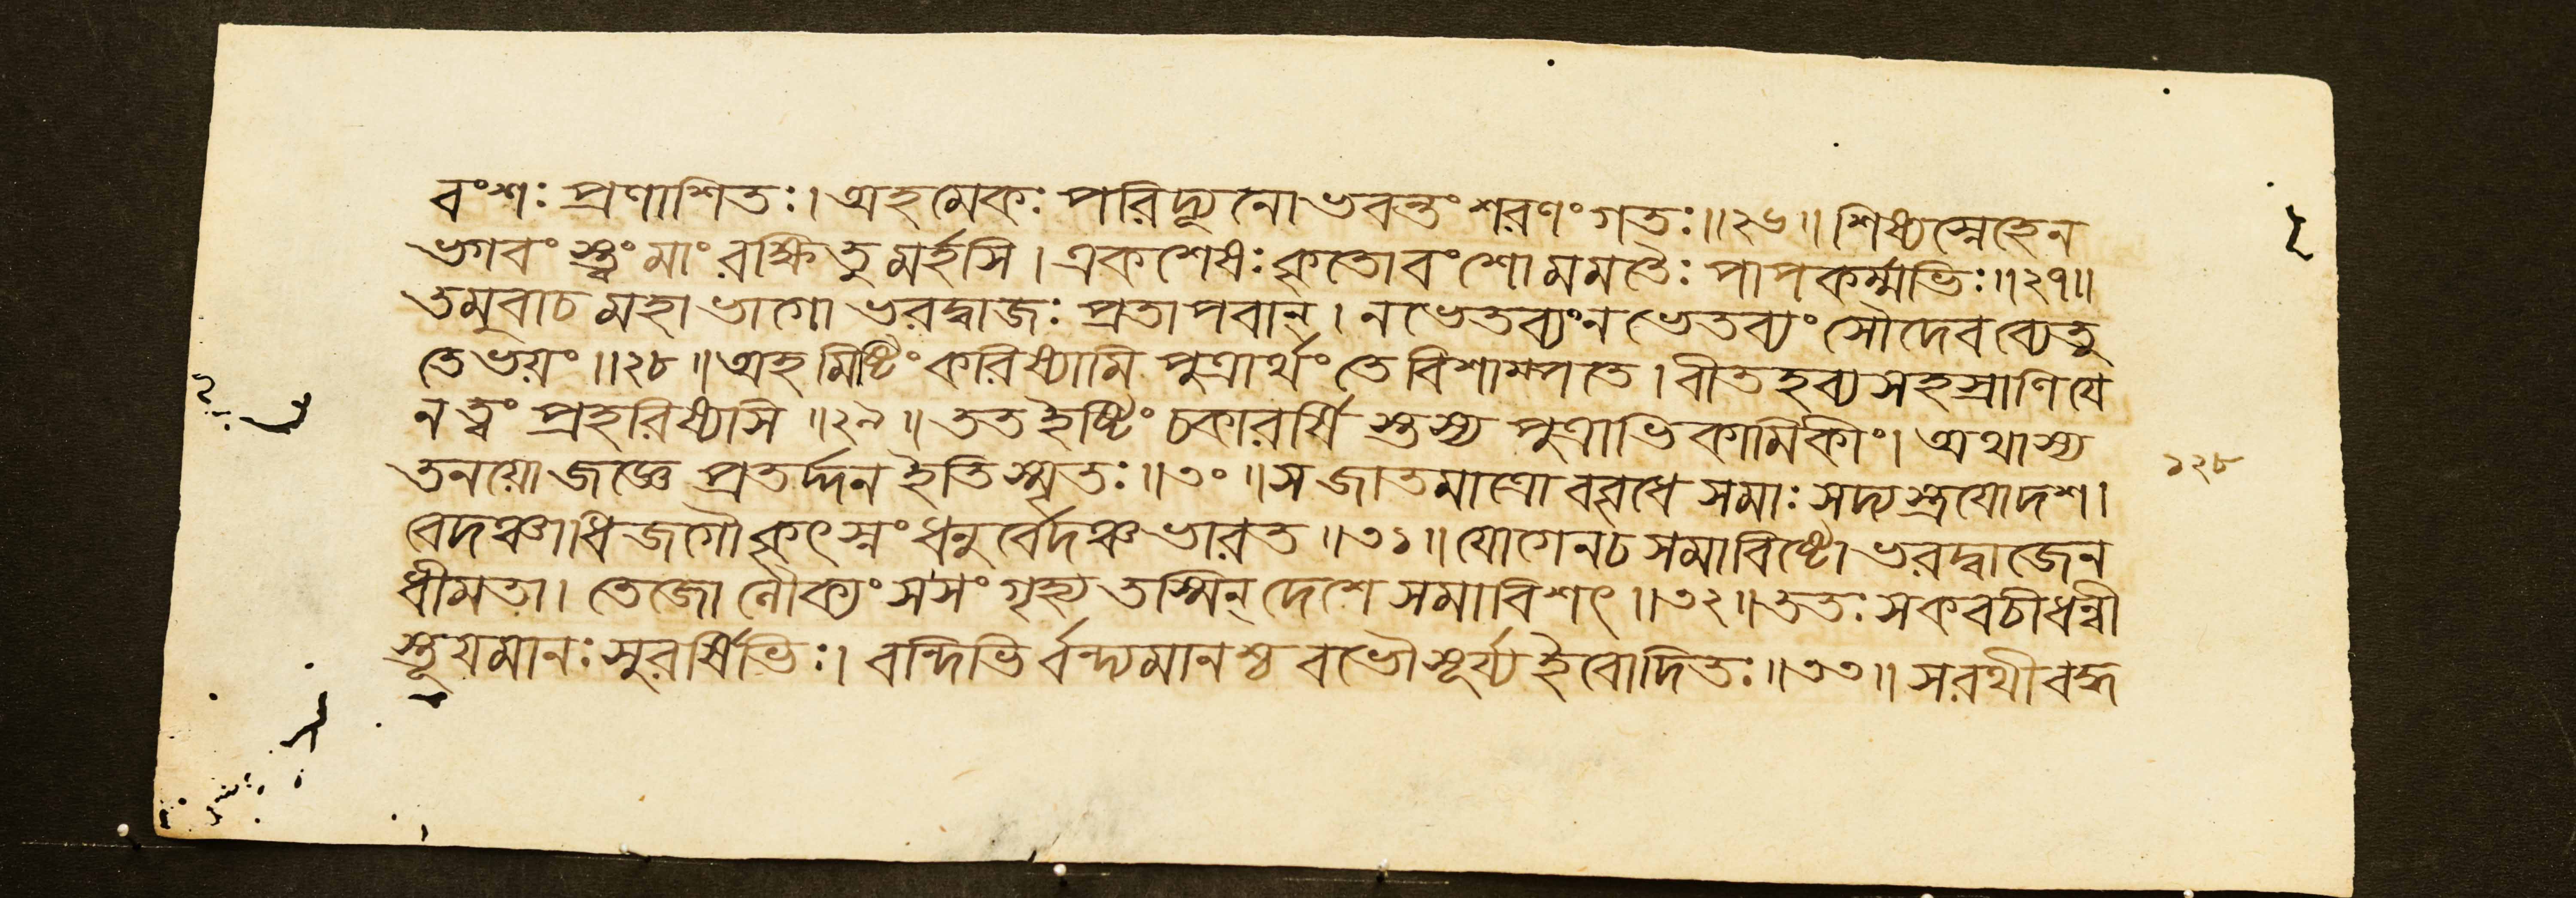 বংশঃ প্রণাশিতঃ। অহমেকঃ পরিদ্যূনো ভবন্তং শরণং গতঃ॥২৬॥ শিষ্যস্নেহেন
ভগবংস্ত্বং মাং রক্ষিতুমর্হসি। একশেষঃ কৃতো বংশো মম তৈঃ পাপকর্ম্মভিঃ॥২৭॥
তমুবাচ মহাভাগো ভরদ্বাজঃ প্রতাপবান্। ন ভেতব্যং ন ভেতব্যং সৌদেব ব্যেতু
তে ভয়ং॥২৮॥ অহমিষ্টিং করিষ্যামি পুত্রার্থং তে বিশাম্পতে। বীতহব্যসহস্রাণি যে
ন ত্বং প্রহরিষ্যসি॥২৯॥ তত ইষ্টিং চকারর্ষিস্তস্য পুত্রাভিকামিকীং। অথাস্য
তনয়ো জজ্ঞে প্রতর্দ্দন ইতি স্মৃতঃ॥৩০॥ স জাতমাত্রো ববৃধে সমাঃ সদ্যস্ত্রয়োদশ।
বেদঞ্চাধিজগৌ কৃৎস্নং ধনুর্বেদঞ্চ ভারত॥৩১॥ যোগেন চ সমাবিষ্টো ভরদ্বাজেন
ধীমতা। তেজো লৌক্যং স সংগৃহ্য তস্মিন্ দেশে সমাবিশৎ॥৩২॥ ততঃ স কবচী ধন্বী
স্তূয়মানঃ সুরর্ষিভিঃ। বন্দিভির্বন্দ্যমানশ্চ বভৌ সূর্য্য ইবোদিতঃ॥৩৩॥ স রথী বদ্ধ
১২৮